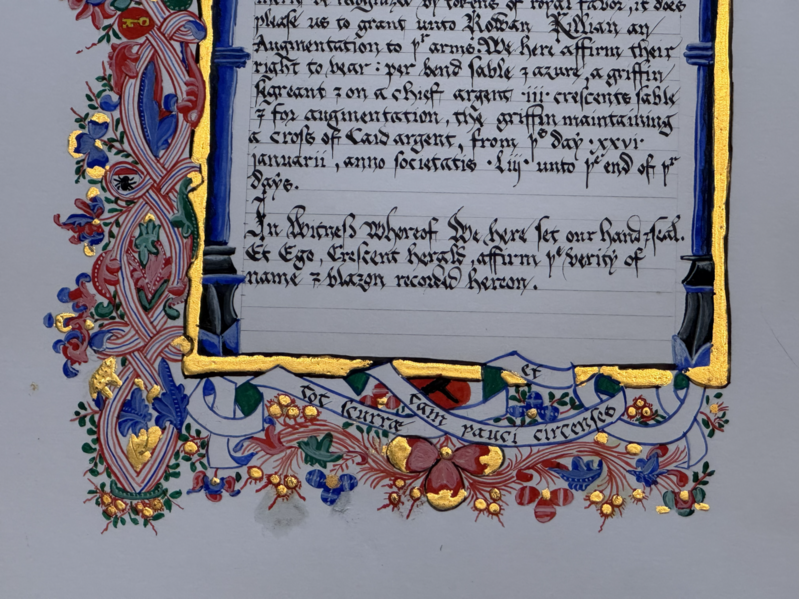 merit be recognized by tokens of royal favor, it does
please us to grant unto Rowan Killian an
Augmentation to yr arms. We here affirm their
right to bear: per bend sable & azure, a griffin
segreant & on a chief argent iii crescents sable
& for augmentation, the griffin maintaining
a cross of Caid argent, from ys day ·xxvi·
januarii, anno societatis ·Liii· unto ye end of yr
days.
In Witness Whereof We here set our hand & seal.
Et Ego, Crescent herald, affirm ye verity of
name & blazon recorded hereon.
tot scurræ et
tam pauci circenses